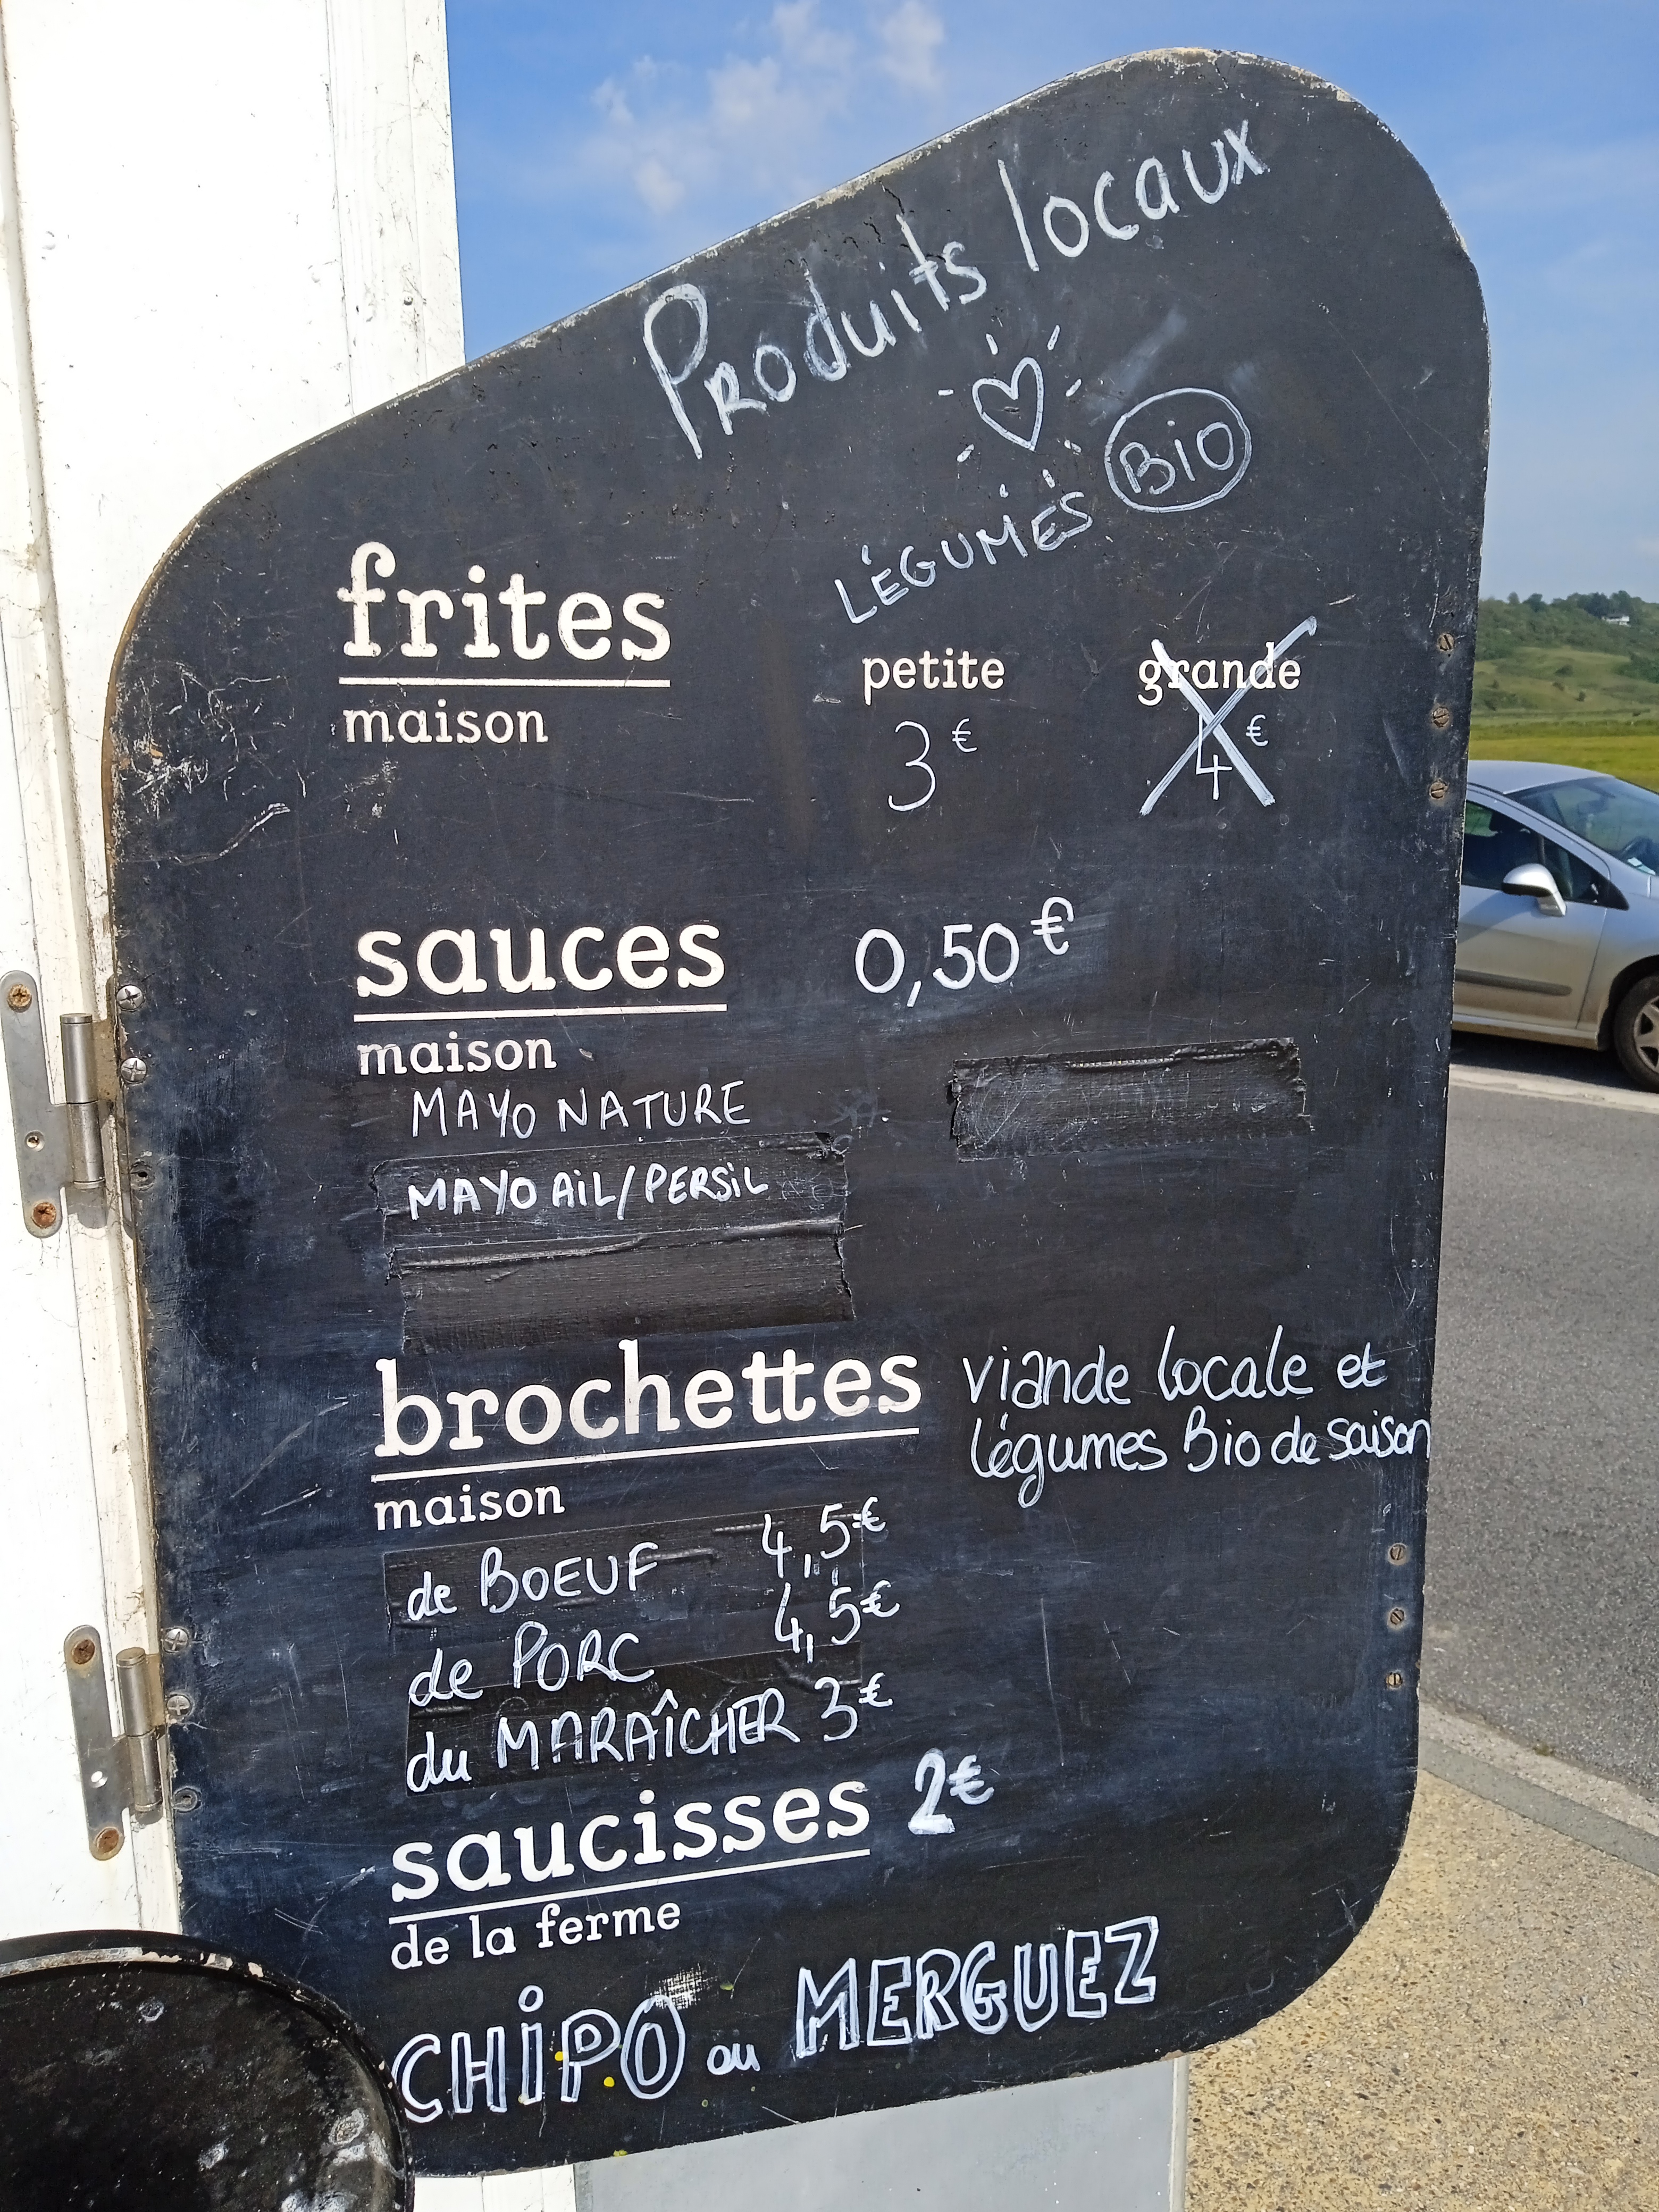 Produits locaux
LÉGUMES BIO
frites
maison
petite grande
3€ 4€
sauces 0,50€
maison
MAYO NATURE
MAYO AIL/PERSIL
brochettes viande locale et
légumes Bio de saison
maison
de BOEUF 4,5€
de PORC 4,5€
du MARAÎCHER 3€
saucisses 2€
de la ferme
CHIPO ou MERGUEZ